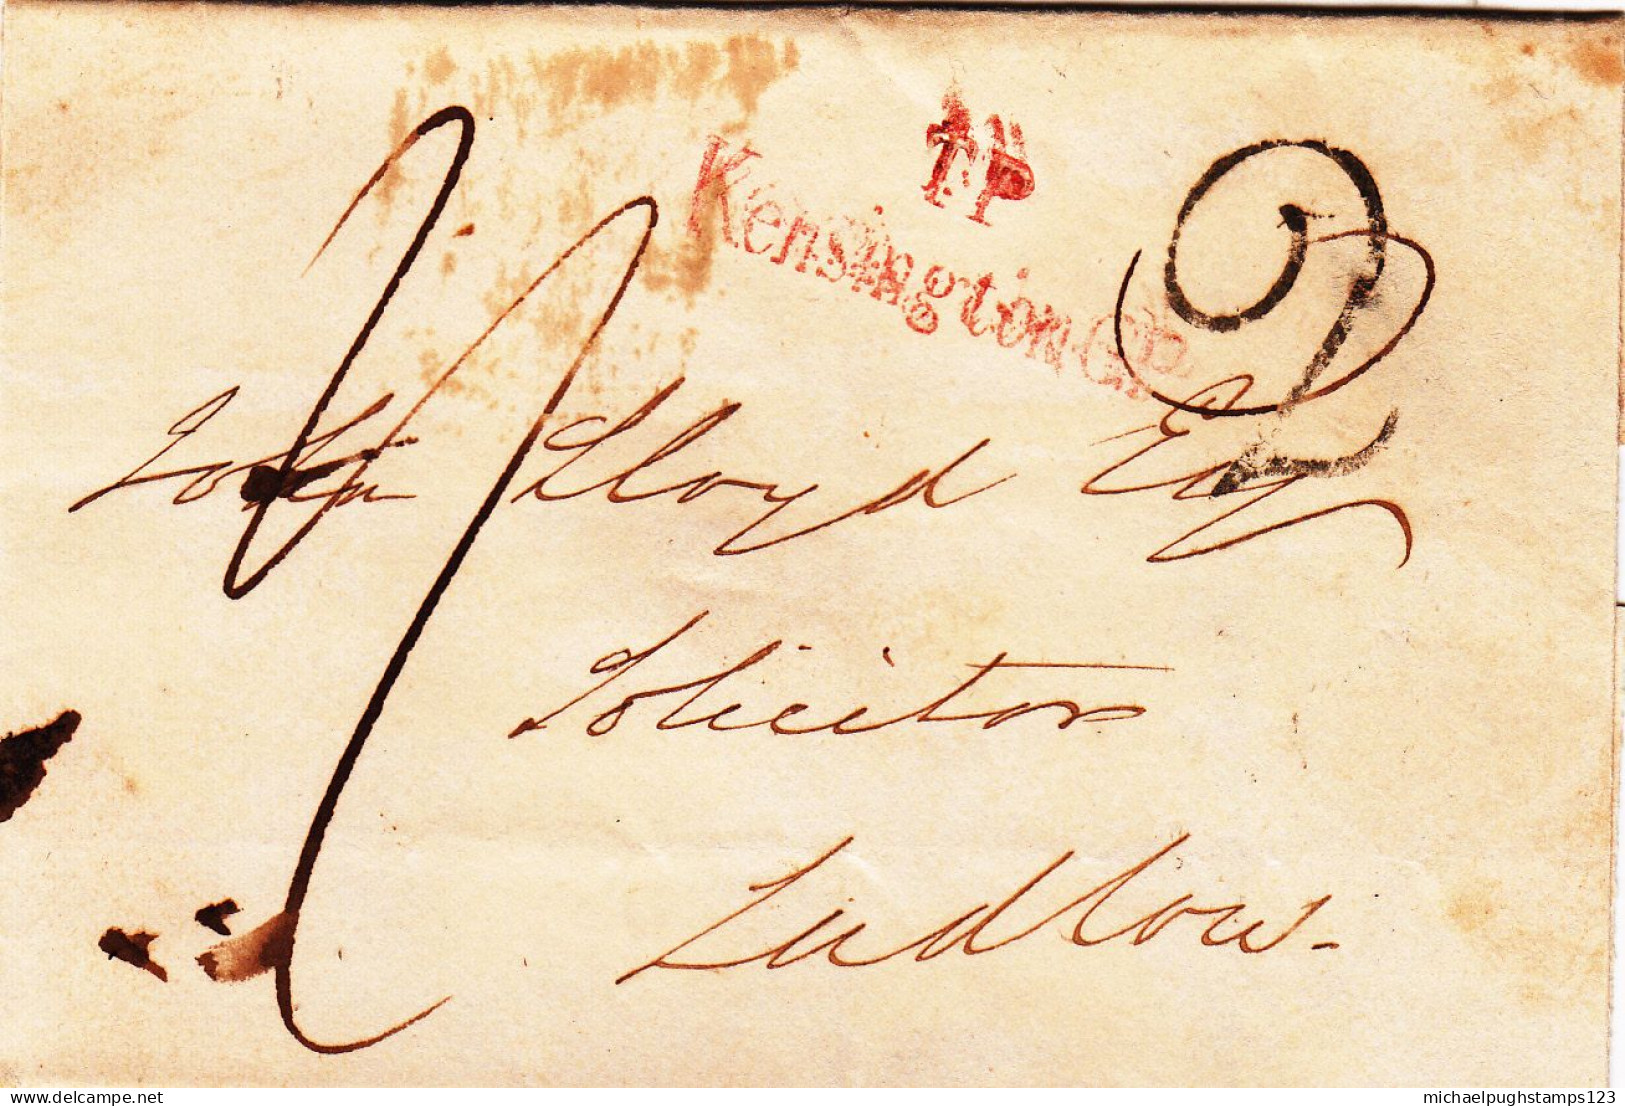 TP
Kensington G
2
John Lloyd Esq
Solicitor
Ludlow.
delcampe.net
michaelpughstamps123